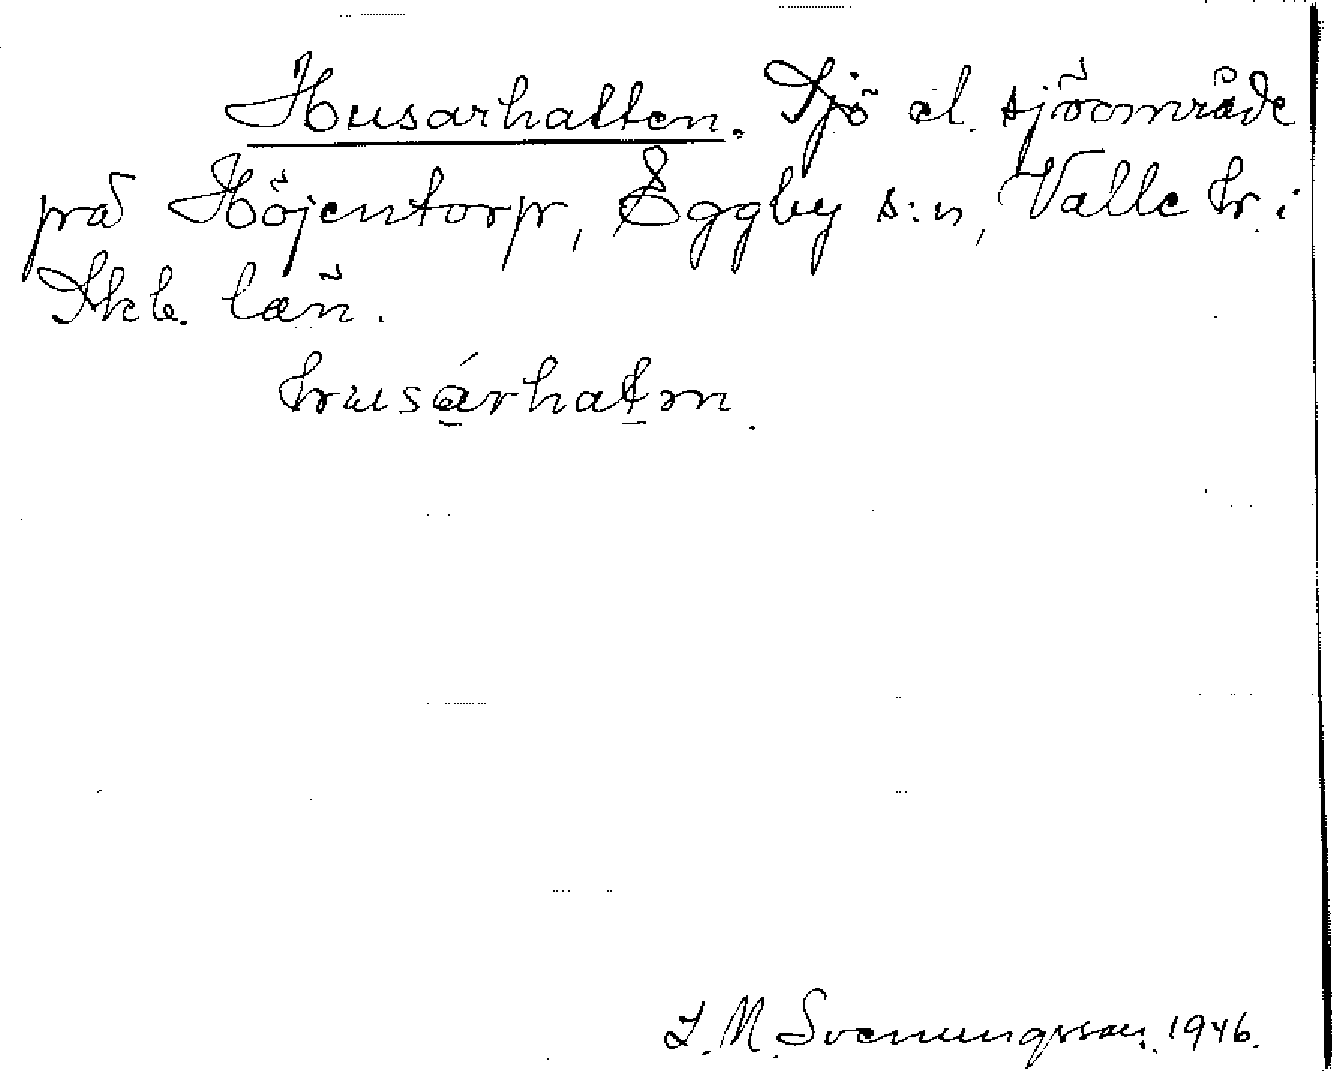 Husarhatten. Sjö el. sjöområde
på Höjentorp, Eggby s:n, Valle hr. i
Skb. län.
husárhatn.
I. M. Svenungsson. 1946.